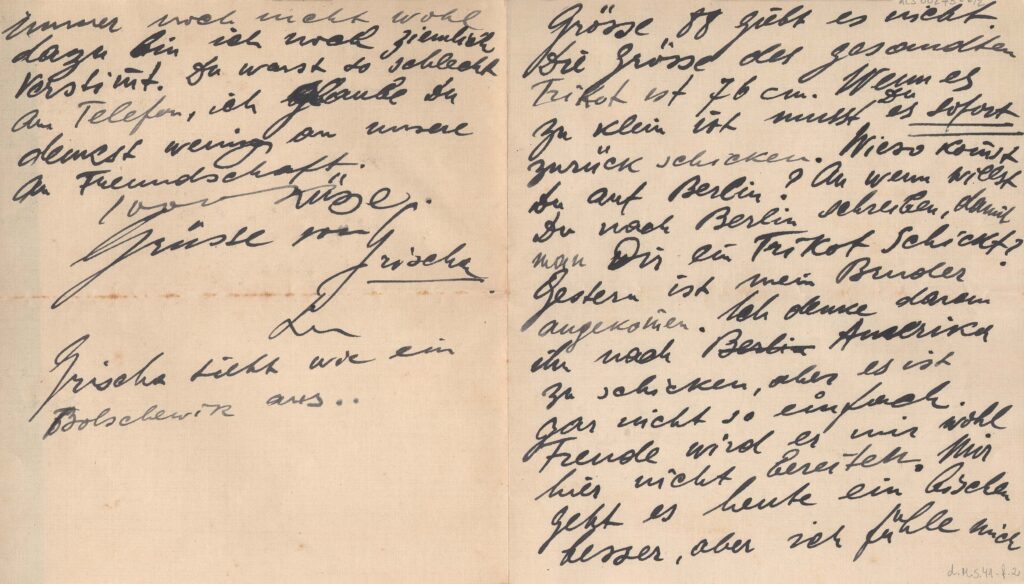 Grösse 88 gibt es nicht.
Die Grösse des gesandten
Trikot ist 76 cm. Wenn es
zu klein ist musst Du es sofort
zurück schicken. Wieso kommst
Du auf Berlin? An wenn willst
Du nach Berlin schreiben, damit
man Dir ein Trikot Schickt?
Gestern ist mein Bruder
angekomen. Ich denke daram
ihn nach Berlin Amerika
zu schicken, aber es ist
gar nicht so einfach.
Freude wird er mir wohl
hier nicht bereiten. Mir
geht es heute ein bischen
besser, aber ich fühle mich
immer noch nicht wohl
dazu bin ich noch ziemlich
verstimt. Du warst so schlecht
am Telefon, ich glaube Du
denkst wenig an unsere
an Freundschaft.
1000 Küsse.
Grüsse von
Grischa
Grischa sieht wie ein
Bolschewik aus..